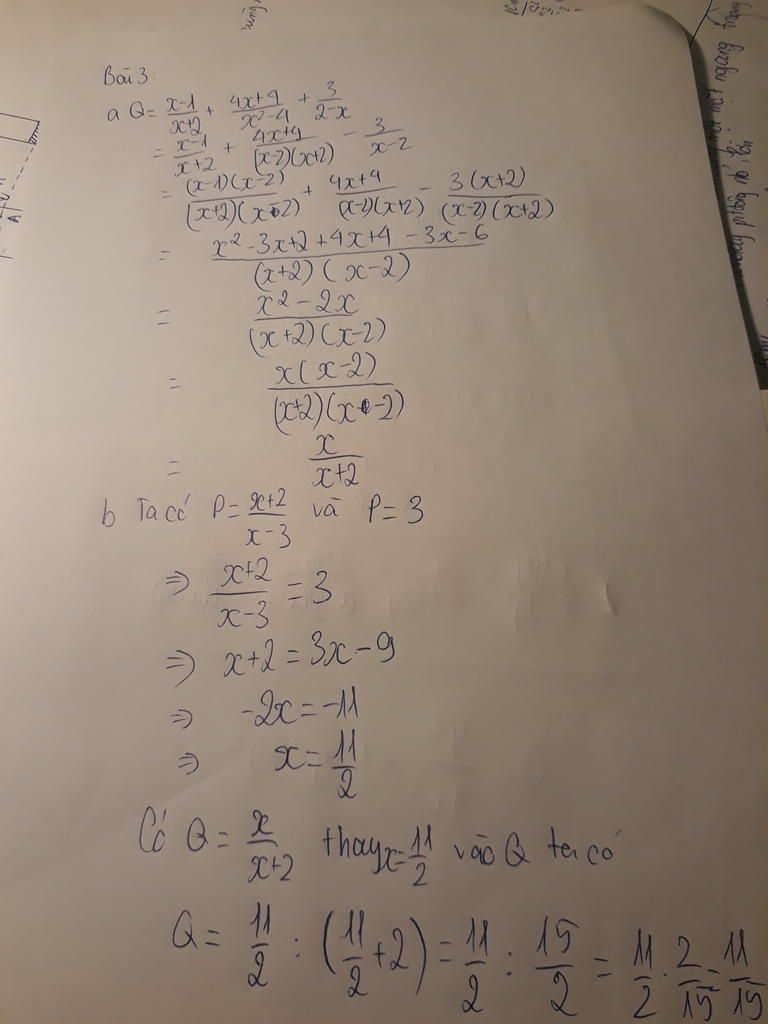 Bài 3:
a Q = \frac{x-1}{x+2} + \frac{4x+4}{x^2-4} + \frac{3}{2-x}
= \frac{x-1}{x+2} + \frac{4x+4}{(x-2)(x+2)} - \frac{3}{x-2}
= \frac{(x-1)(x-2)}{(x+2)(x-2)} + \frac{4x+4}{(x-2)(x+2)} - \frac{3(x+2)}{(x-2)(x+2)}
= \frac{x^2-3x+2+4x+4-3x-6}{(x+2)(x-2)}
= \frac{x^2-2x}{(x+2)(x-2)}
= \frac{x(x-2)}{(x+2)(x-2)}
= \frac{x}{x+2}
b Ta có P = \frac{x+2}{x-3} và P = 3
⇒ \frac{x+2}{x-3} = 3
⇒ x+2 = 3x-9
⇒ -2x = -11
⇒ x = \frac{11}{2}
Có Q = \frac{x}{x+2} thay x = \frac{11}{2} vào Q ta có
Q = \frac{11}{2} : (\frac{11}{2} + 2) = \frac{11}{2} : \frac{15}{2} = \frac{11}{2} . \frac{2}{15} = \frac{11}{15}